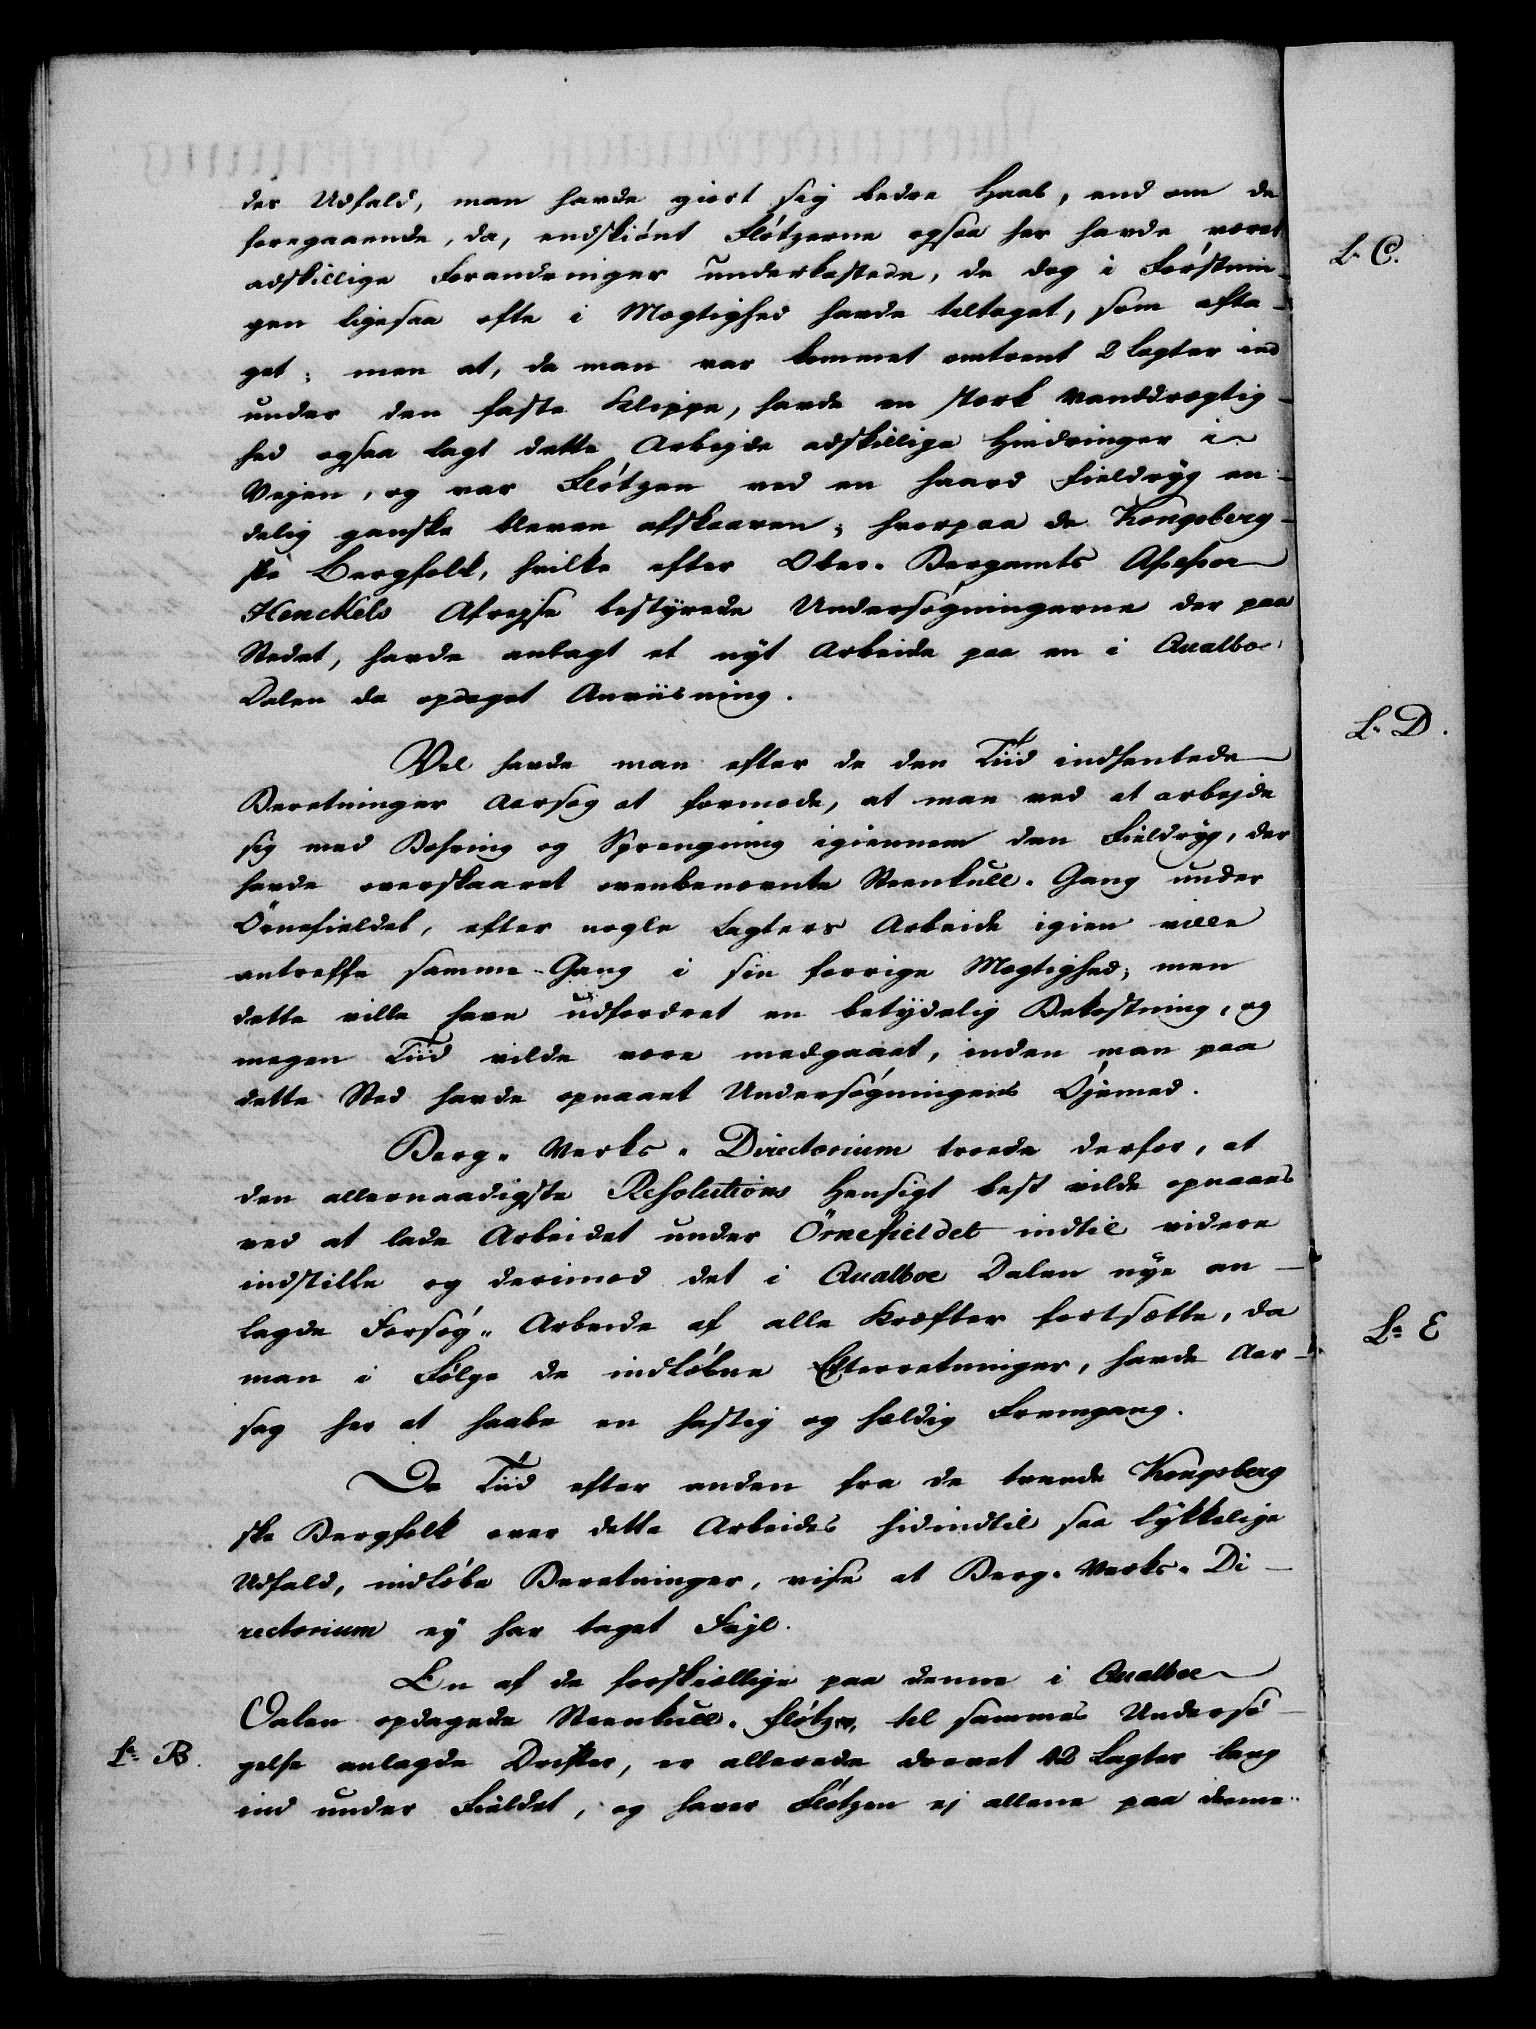 des Udfald, man havde giort sig bedre Haab, end om de
foregaaende, da, endskiönt Flötzerne ogsaa her havde været
adskillige Forandringer underkastede, de dog i Forstnin-
gen ligesaa ofte i Mægtighed havde tiltaget, som afta-
get; men at, da man var kommet omtrent 2 Lagter ind
under den faste Klippe, havde en stærk Vanddrægtig-
hed ogsaa lagt dette Arbejde adskillige Hindringer i
Vejen, og var Flötzen ved en haard Fieldryg en-
delig ganske bleven afskaaren; hvorpaa de Kongsberg-
ske Bergfolk, hvilke efter Ober-Bergamts Assessor
Henckels Afrejse bestyrede Undersøgningerne der paa
Stedet, havde anlagt et nyt Arbeide paa en i Qualboe
Dalen da opdaget Anviisning.
Vel havde man efter de den Tiid indhentede
Beretninger Aarsag at formode, at man ved at arbejde
sig med Bohring og Sprengning igiennem den Fieldryg, der
havde overskaaret ovenbenævnte Steenkull-Gang under
Örnefieldet, efter nogle Lagters Arbeide igien ville
antreffe samme Gang i sin forrige Mægtighed; men
dette ville have udfordret en betydelig Bekostning, og
megen Tiid vilde være medgaaet, inden man paa
dette Sted havde opnaaet Undersøgningens Öjemed.
Berg-Verks-Directorium troede derfor, at
den allernaadigste Resolutions Hensigt best vilde opnaaes
ved at lade Arbeidet under Örnefieldet indtil videre
indstille og derimod det i Qualboe Dalen nye an-
lagde Forsøg-Arbeide af alle Kræfter fortsætte, da
man i Følge de indløbne Efterretninger, havde Aar-
sag her at haabe en hastig og heldig Fremgang.
De Tiid efter anden fra de tvende Kongsberg
ske Bergfolk over dette Arbeides hidindtil saa lykkelige
Udfald, indløbe Beretninger, vise at Berg-Verks-Di-
rectorium ej har taget Fejl.
En af de forskiællige paa denne i Qualboe
Dalen opdagede Steenkull-Flötzer, til sammes Undersö-
gelse anlagde Drifter, er allerede drevet 42 Lagter lang
ind under Fieldet, og haver Flötzen ej allene paa denne
La B.
L. C.
L. D.
La E